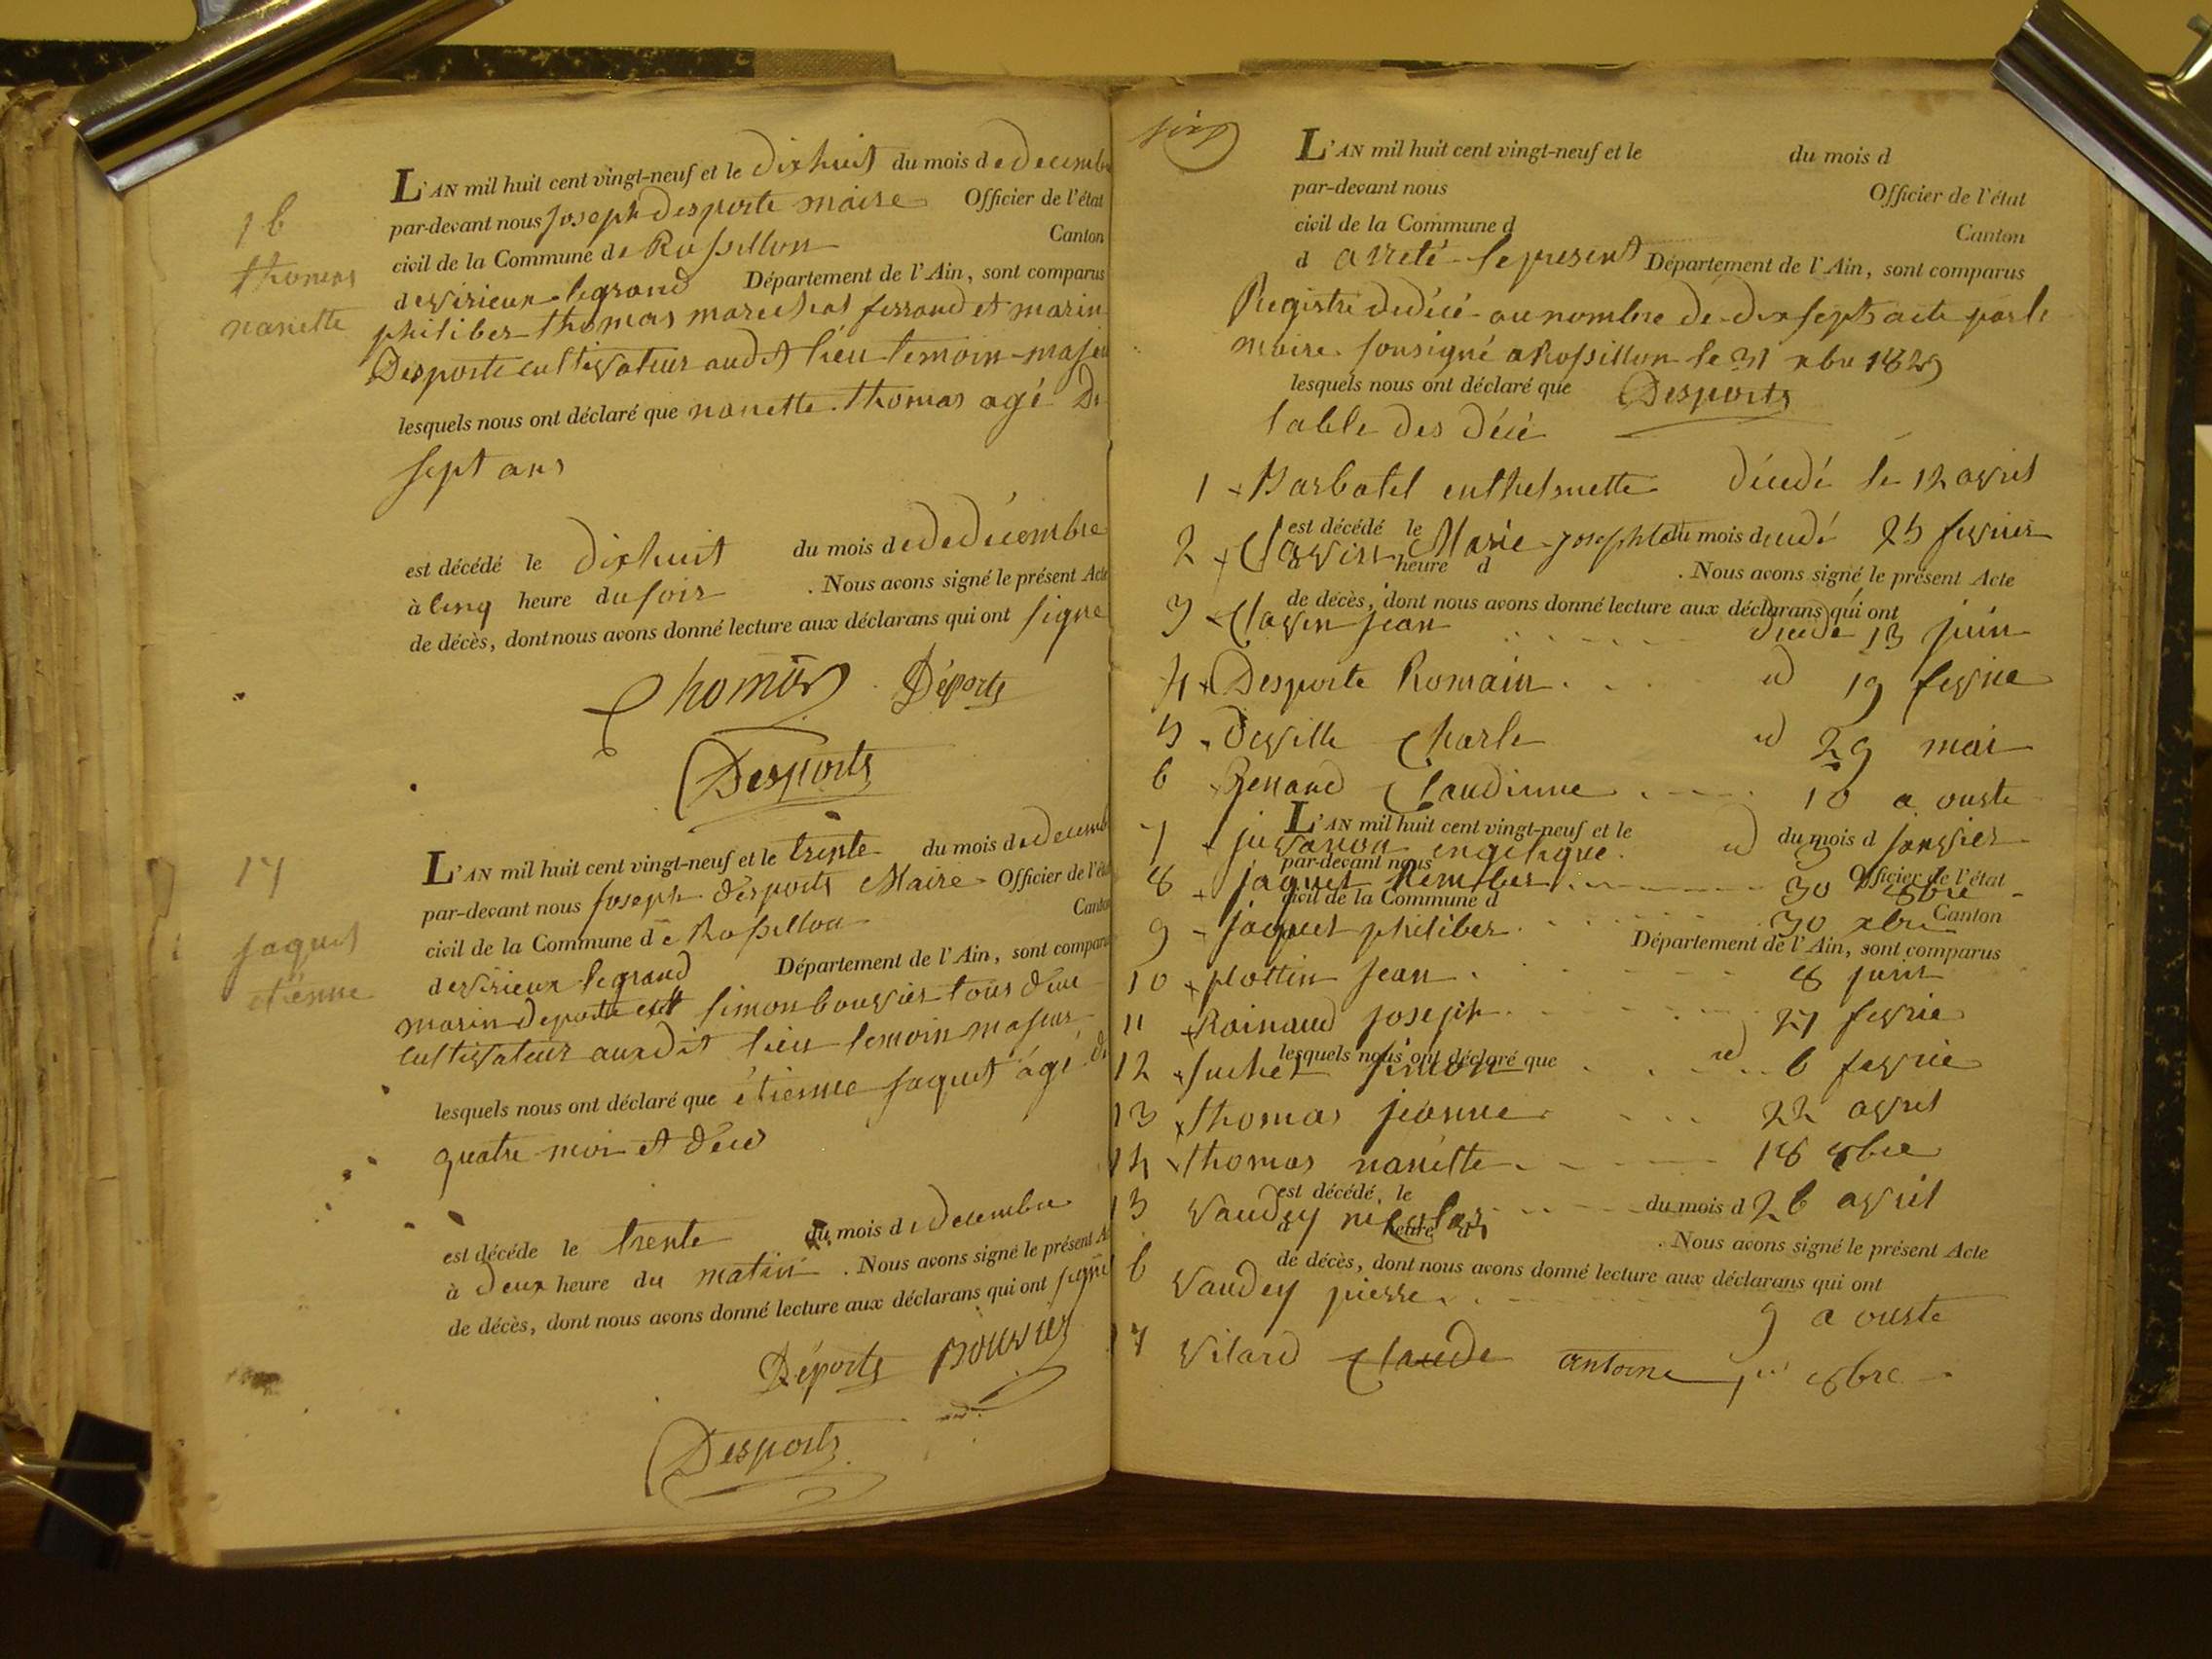 16
thomas
nanette
L'AN mil huit cent vingt-neuf et le dixhuit du mois de decembr
par-devant nous joseph desporte maire Officier de l'état
civil de la Commune de Rossillon Canton
de virieux legrand Département de l'Ain, sont comparus
philiber thomas marechal ferrand et marin
Desporte cultivateur audit lieu temoin majeu
lesquels nous ont déclaré que nanette thomas agé De
sept ans
est décédé le dixhuit du mois de dedécembre
à cinq heure du soir . Nous avons signé le présent Acte
de décès, dont nous avons donné lecture aux déclarans qui ont signe
Thomas Déports
Desports
17
jaquet
étienne
L'AN mil huit cent vingt-neuf et le trente du mois de decemb
par-devant nous joseph desports Maire Officier de l'éta
civil de la Commune de Rossillon Canto
de virieux legrand Département de l'Ain, sont comparu
marin deporte et simon bouvier tous deux
cultivateur auxdit lieu temoin majeur
lesquels nous ont déclaré que étienne jaquet agé de
quatre moi et deux
est décédé le trente du mois de decembre
à deux heure du matin . Nous avons signé le présent A
de décès, dont nous avons donné lecture aux déclarans qui ont signé
Déports bouvier
Desports
L'AN mil huit cent vingt-neuf et le du mois d
par-devant nous Officier de l'état
civil de la Commune d Canton
d arreté le present Département de l'Ain, sont comparus
Registre dedécé au nombre de dix sept acte par le
maire sousigné a Rossillon le 31 xbre 1829
lesquels nous ont déclaré que Desports
table des décé
1 Barbatel enthelmette décedé le 12 avril
est décédé le du mois d
2 Clavin Marie josephte decedé 25 fevrier
heure d . Nous avons signé le présent Acte
de décès, dont nous avons donné lecture aux déclarans qui ont
3 Clavin jean decedé 13 juin
4 Desporte Romain id 19 fevrie
5 Deville Charle id 29 mai
6 Genand Claudinne 10 a ouste
L'AN mil huit cent vingt-neuf et le du mois d
7 juvanon engelique id 3 janvier
par-devant nous Officier de l'état
8 jaquet 30 8bre
civil de la Commune d Canton
9 jaquet philiber 30 xbre
Département de l'Ain, sont comparus
10 plottin jean 8 juin
11 Rainaud joseph 27 fevrie
lesquels nous ont déclaré que
12 suchet simon id 6 fevrie
13 thomas jeanne 22 avril
14 thomas nanette 18 xbre
est décédé le du mois d
15 Vaudey nicolas 26 avril
heure d . Nous avons signé le présent Acte
de décès, dont nous avons donné lecture aux déclarans qui ont
6 Vaudey pierre 9 a ouste
17 Vilard Claude antoine 8bre